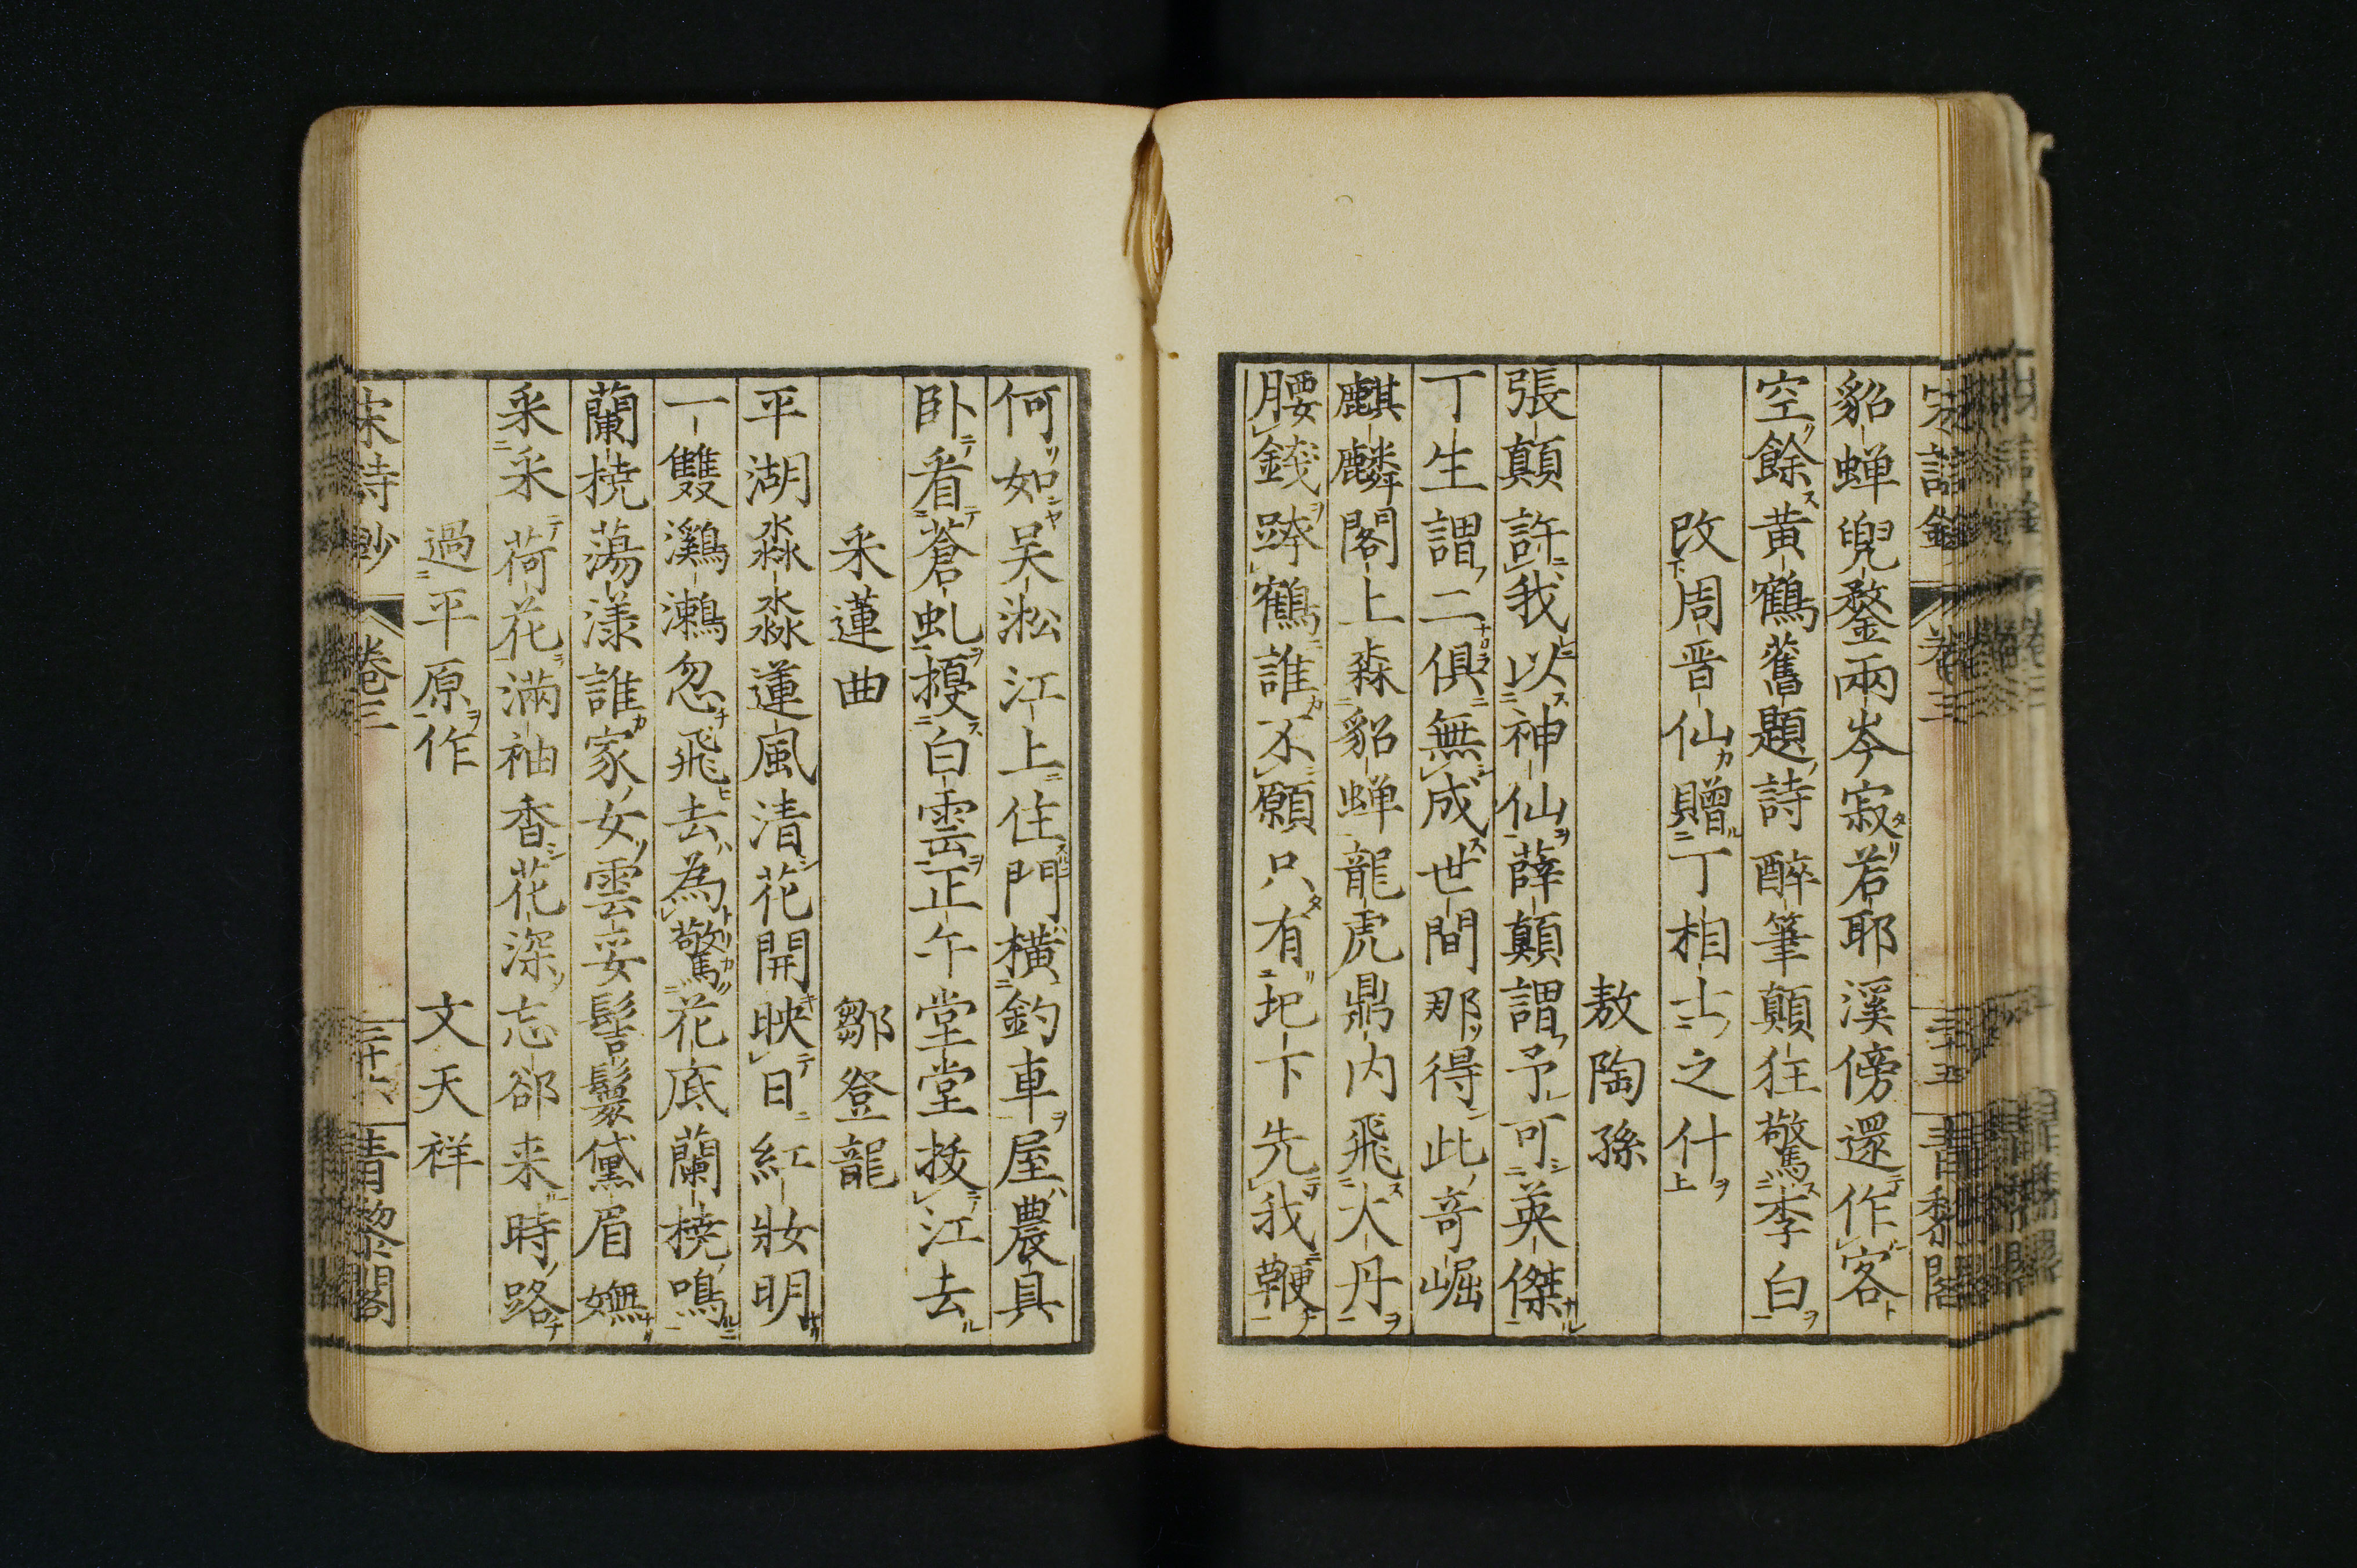 貂蝉兜鍪兩岑寂若耶溪傍還作客
空餘黄鶴舊題詩醉筆顛狂驚李白
改周晋仙贈丁相士之什
敖陶孫
張顛許我以神仙薛顛謂予可英傑
丁生謂二俱無成世間那得此竒崛
麒麟閣上森貂蝉龍虎鼎内飛大丹
腰錢跨鶴誰不願只有圯下先我鞭
何如吴淞江上住門横釣車屋農具
卧看蒼虬擾白雲正午堂堂拔江去
采蓮曲
鄒登龍
平湖淼淼蓮風清花開映日紅妝明
一雙鸂鶒忽飛去為驚花底蘭橈鳴
蘭橈蕩漾誰家女雲妥髻鬟黛眉嫵
采采荷花滿袖香花深忘郤来時路
過平原作
文天祥
宋詩鈔 卷三 三十六 青黎閣